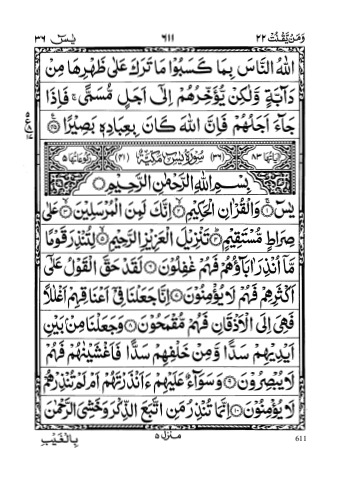 وَمَنْ يَّقْنُتْ ٢٢ ٦١١ يٰسٓ ٣٦
اللّٰهُ النَّاسَ بِمَا كَسَبُوْا مَا تَرَكَ عَلٰى ظَهْرِهَا مِنْ
دَآبَّةٍ وَّلٰكِنْ يُّؤَخِّرُهُمْ اِلٰٓى اَجَلٍ مُّسَمًّىۚ فَاِذَا
جَآءَ اَجَلُهُمْ فَاِنَّ اللّٰهَ كَانَ بِعِبَادِهٖ بَصِيْرًا ﴿٤٥﴾
اٰيَاتُهَا ٨٣ (٣٦) سُوْرَةُ يٰسٓ مَكِّيَّةٌ (٤١) رُكُوْعَاتُهَا ٥
بِسْمِ اللّٰهِ الرَّحْمٰنِ الرَّحِيْمِ
يٰسٓ ﴿١﴾ وَالْقُرْاٰنِ الْحَكِيْمِ ﴿٢﴾ اِنَّكَ لَمِنَ الْمُرْسَلِيْنَ ﴿٣﴾ عَلٰى
صِرَاطٍ مُّسْتَقِيْمٍ ﴿٤﴾ تَنْزِيْلَ الْعَزِيْزِ الرَّحِيْمِ ﴿٥﴾ لِتُنْذِرَ قَوْمًا
مَّآ اُنْذِرَ اٰبَآؤُهُمْ فَهُمْ غٰفِلُوْنَ ﴿٦﴾ لَقَدْ حَقَّ الْقَوْلُ عَلٰٓى
اَكْثَرِهِمْ فَهُمْ لَا يُؤْمِنُوْنَ ﴿٧﴾ اِنَّا جَعَلْنَا فِيْٓ اَعْنَاقِهِمْ اَغْلٰلًا
فَهِيَ اِلَى الْاَذْقَانِ فَهُمْ مُّقْمَحُوْنَ ﴿٨﴾ وَجَعَلْنَا مِنْۢ بَيْنِ
اَيْدِيْهِمْ سَدًّا وَّمِنْ خَلْفِهِمْ سَدًّا فَاَغْشَيْنٰهُمْ فَهُمْ
لَا يُبْصِرُوْنَ ﴿٩﴾ وَسَوَآءٌ عَلَيْهِمْ ءَاَنْذَرْتَهُمْ اَمْ لَمْ تُنْذِرْهُمْ
لَا يُؤْمِنُوْنَ ﴿١٠﴾ اِنَّمَا تُنْذِرُ مَنِ اتَّبَعَ الذِّكْرَ وَخَشِيَ الرَّحْمٰنَ
بِالْغَيْبِ منزل ٥ 611